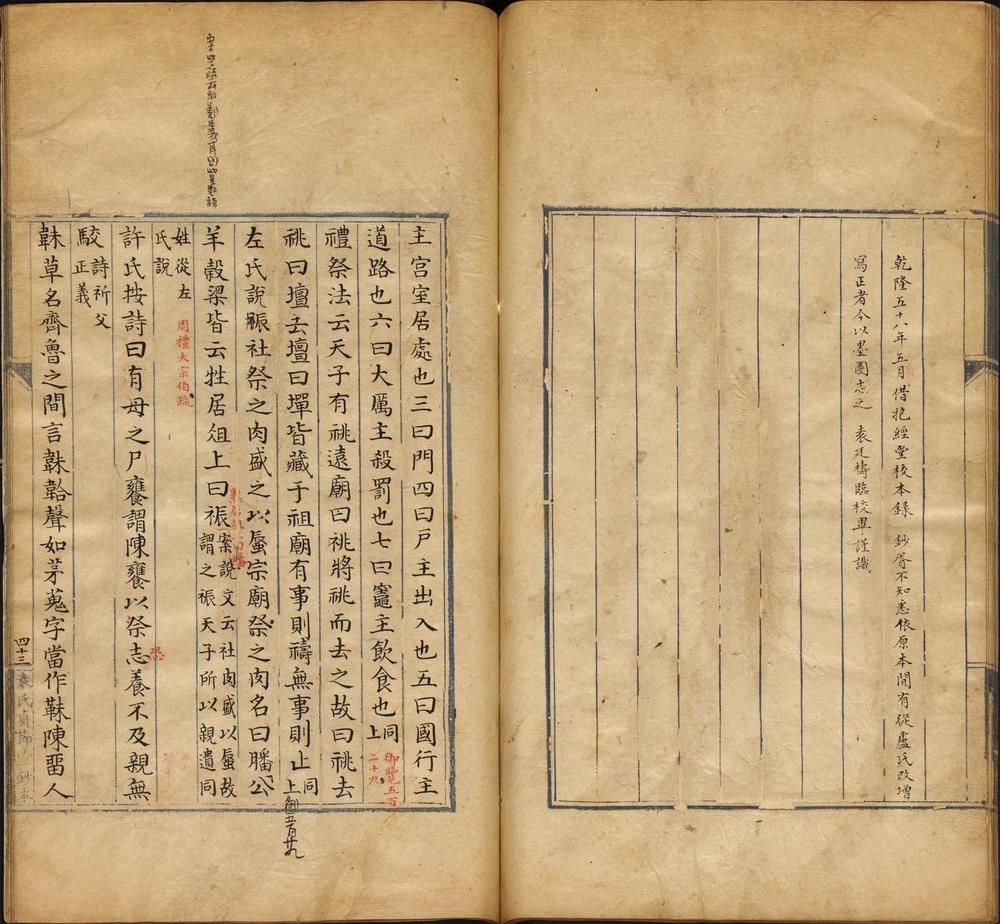 乾隆五十八年五月借抱經堂校本録 鈔胥不知悉依原本間有從盧氏改增
寫正者今以墨圈志之 袁廷檮臨校畢謹識
主宫室居處也三曰門四曰戸主出入也五曰國行主
道路也六曰大厲主殺罰也七曰竈主飲食也同上
御覽五百二十九
禮祭法云天子有祧遠廟曰祧將祧而去之故曰祧去
祧曰壇去壇曰墠皆藏于祖廟有事則禱無事則止同上
御五百廿九
左氏說脤社祭之肉盛之以蜃宗廟祭之肉名曰膰公
羊穀梁皆云牲居俎上曰祳案說文云社肉盛以蜃故
謂之祳天子所以親遺同
姓從左
氏說
周禮大宗伯疏
許氏按詩曰有母之尸饔謂陳饔以祭志養不及親無
恐
駮詩祈父
正義
韎草名齊魯之間言韎韐聲如茅蒐字當作韎陳畱人
四十三
袁氏貞節堂鈔本